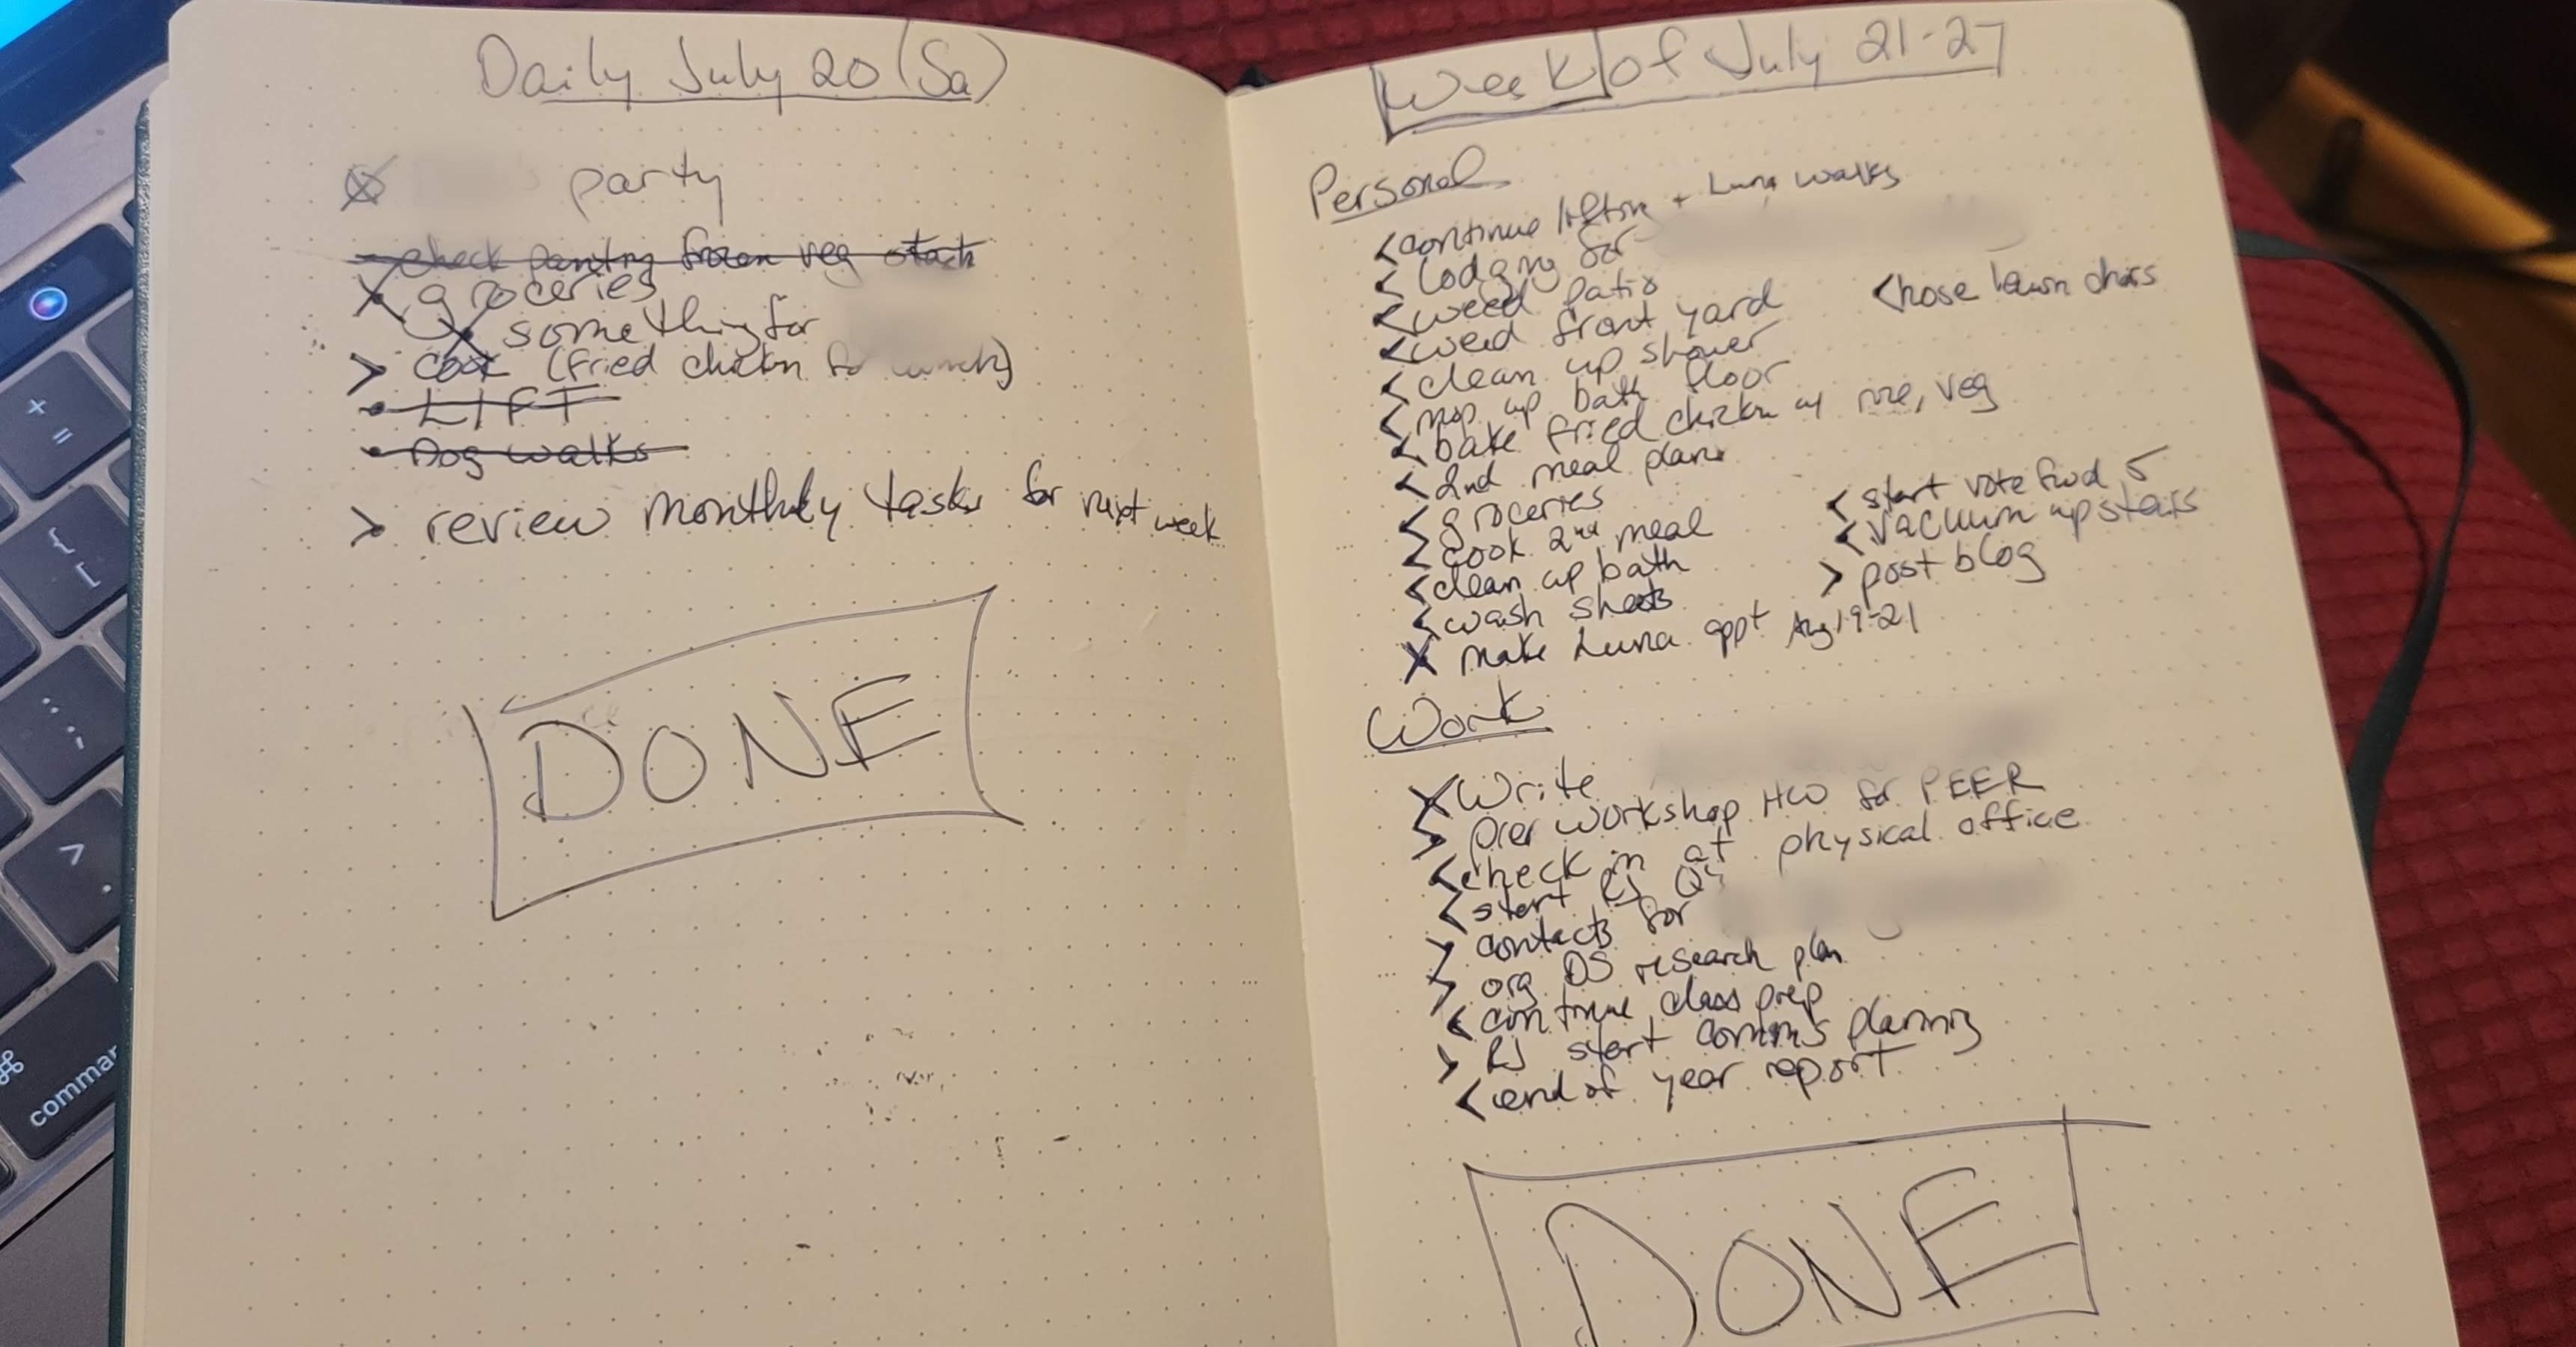 Daily July 20 (Sa)
party
check pantry frozen veg stash
groceries
something for
> cook (fried chickn for lunch)
• LIFT
• Dog walks
> review monthly tasks for next week
DONE
Week of July 21-27
Personal
< continue lifting + Luna walks
< lodging for
< weed patio
< weed front yard
< hose lawn chairs
< clean up shower
< mop up bath floor
< bake fried chickn w/ rice, veg
< 2nd meal plan
< groceries
< start vote fwd 5
< cook 2nd meal
< vacuum upstairs
< clean up bath
> post blog
< wash sheets
X make Luna appt Aug 19-21
Work
X Write
> peer workshop HW for PEER
< check in at physical office
< start RJ Qs
> contacts for
> org DS research plan
< continue class prep
> RJ start comms planning
< end of year report
DONE
+
=
{
[
:
;
>
.
⌘
comman